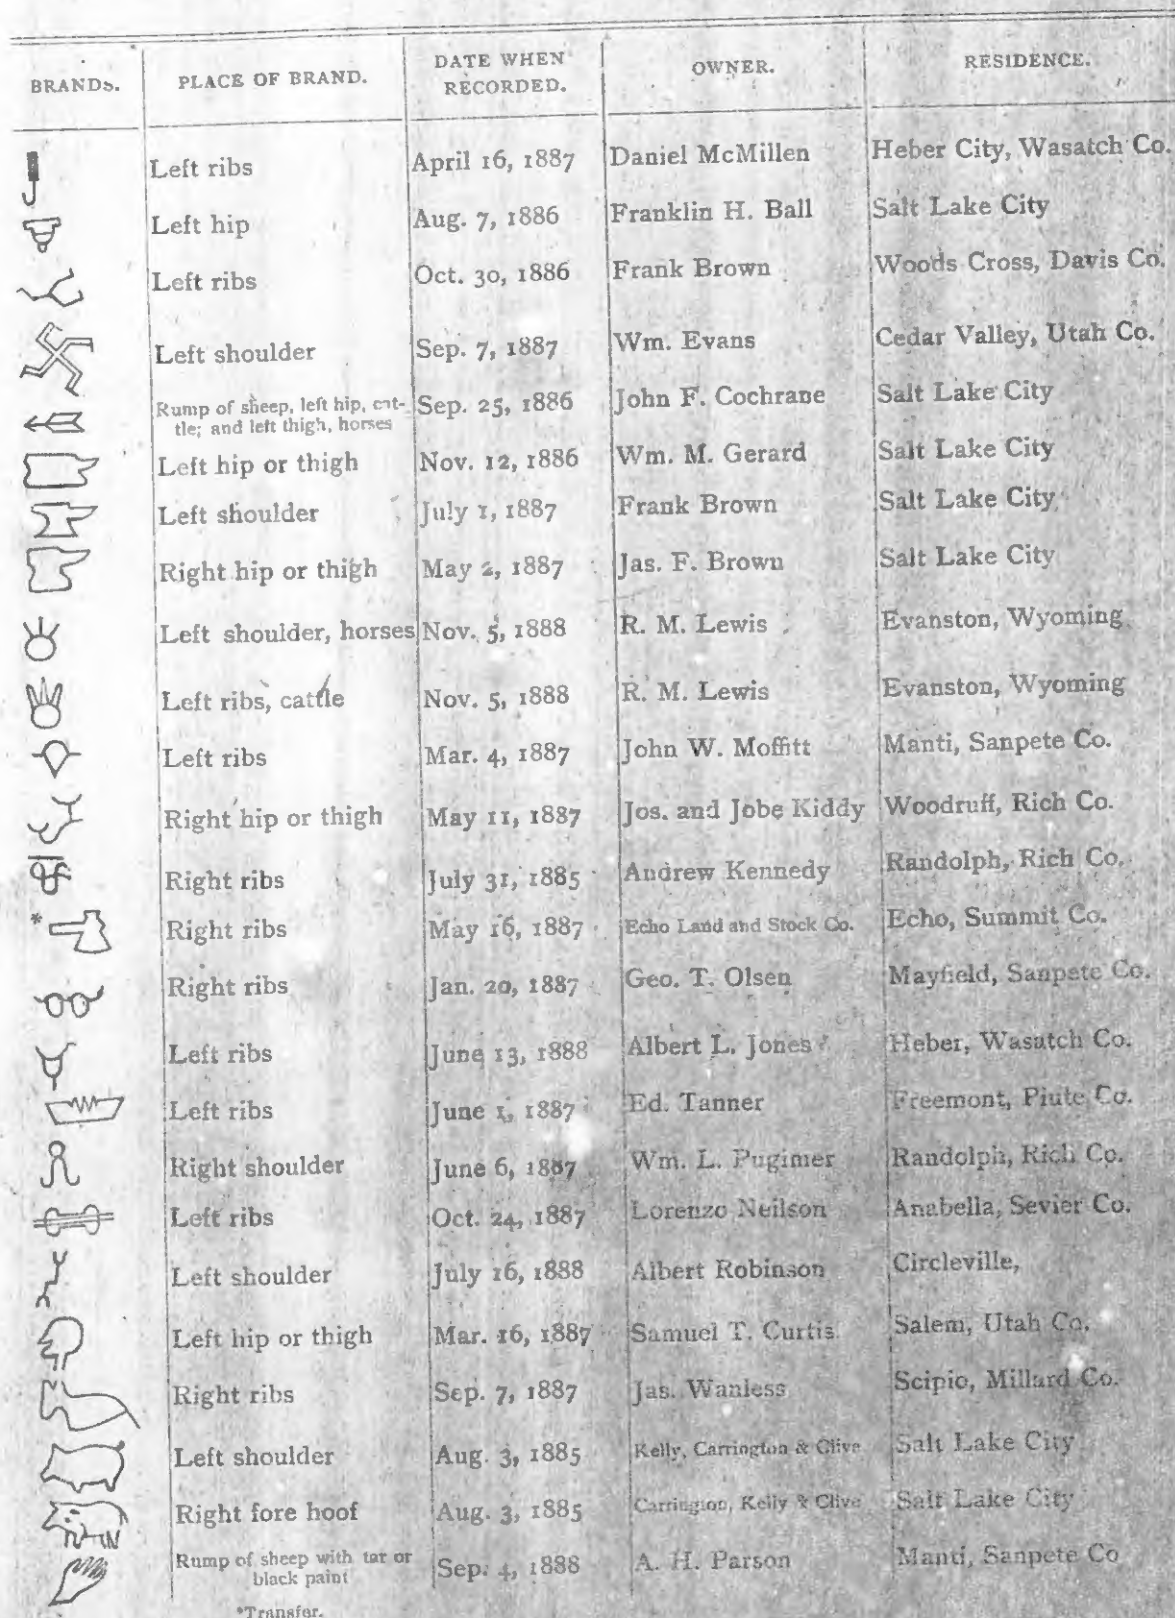 BRANDS. PLACE OF BRAND. DATE WHEN RECORDED. OWNER. RESIDENCE.
Left ribs April 16, 1887 Daniel McMillen Heber City, Wasatch Co.
Left hip Aug. 7, 1886 Franklin H. Ball Salt Lake City
Left ribs Oct. 30, 1886 Frank Brown Woods Cross, Davis Co.
Left shoulder Sep. 7, 1887 Wm. Evans Cedar Valley, Utah Co.
Rump of sheep, left hip, cat-
tle; and left thigh, horses Sep. 25, 1886 John F. Cochrane Salt Lake City
Left hip or thigh Nov. 12, 1886 Wm. M. Gerard Salt Lake City
Left shoulder July 1, 1887 Frank Brown Salt Lake City
Right hip or thigh May 2, 1887 Jas. F. Brown Salt Lake City
Left shoulder, horses Nov. 5, 1888 R. M. Lewis Evanston, Wyoming
Left ribs, cattle Nov. 5, 1888 R. M. Lewis Evanston, Wyoming
Left ribs Mar. 4, 1887 John W. Moffitt Manti, Sanpete Co.
Right hip or thigh May 11, 1887 Jos. and Jobe Kiddy Woodruff, Rich Co.
Right ribs July 31, 1885 Andrew Kennedy Randolph, Rich Co.
* Right ribs May 16, 1887 Echo Land and Stock Co. Echo, Summit Co.
Right ribs Jan. 20, 1887 Geo. T. Olsen Mayfield, Sanpete Co.
Left ribs June 13, 1888 Albert L. Jones Heber, Wasatch Co.
Left ribs June 1, 1887 Ed. Tanner Freemont, Piute Co.
Right shoulder June 6, 1887 Wm. L. Pugimer Randolph, Rich Co.
Left ribs Oct. 24, 1887 Lorenzo Neilson Anabella, Sevier Co.
Left shoulder July 16, 1888 Albert Robinson Circleville,
Left hip or thigh Mar. 16, 1887 Samuel T. Curtis Salem, Utah Co.
Right ribs Sep. 7, 1887 Jas. Wanless Scipio, Millard Co.
Left shoulder Aug. 3, 1885 Kelly, Carrington & Clive Salt Lake City
Right fore hoof Aug. 3, 1885 Carrington, Kelly & Clive Salt Lake City
Rump of sheep with tar or
black paint Sep. 4, 1888 A. H. Parson Manti, Sanpete Co
*Transfer.